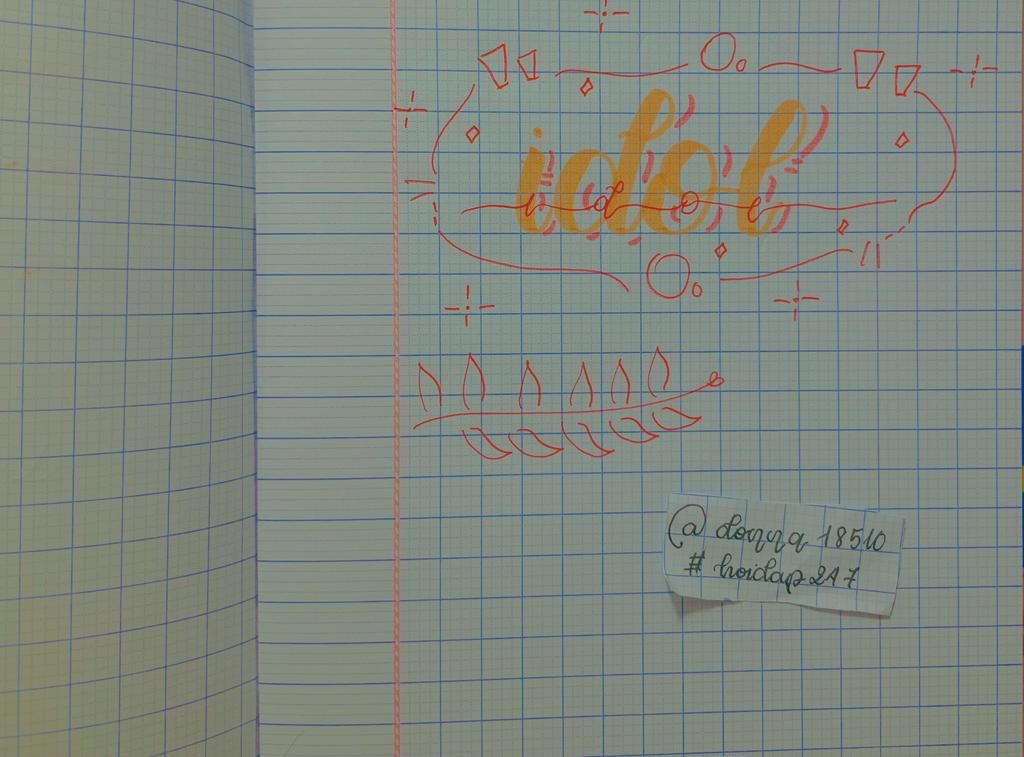 idol
idol
@ dorrra 18510
# hoidap247